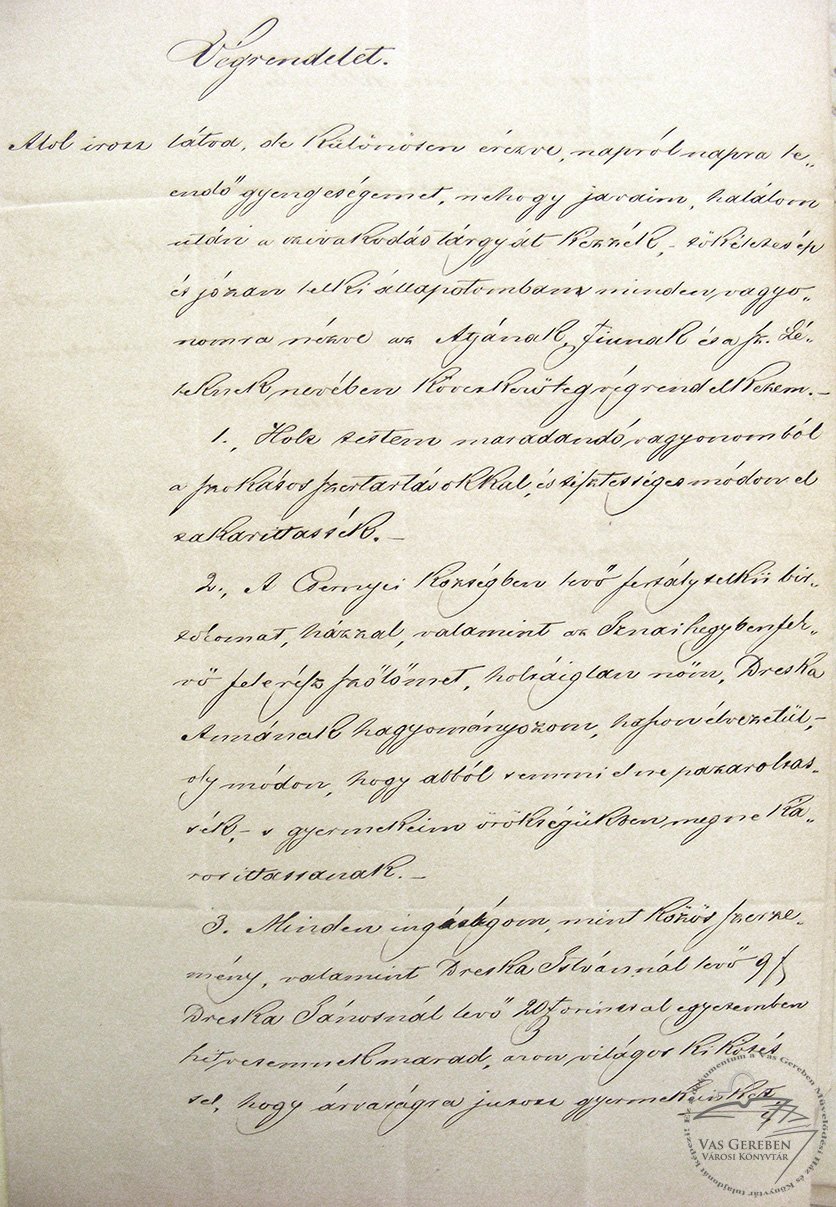 Végrendelet.
Alol irott látva, de különösen érezve, napról napra le„
endő gyengeségemet, nehogy javaim, halálom
után a czivakodás tárgyát tezzék, – tökéletes ép
és józan lelki állapotomban minden vagyo„
nomra nézve az Atyának, Fiunak és a sz. Lé„
leknek nevében következőleg végrendelkezem. –
1., Holt testem maradandó vagyonomból
a szokásos szertartásokkal, és tisztességes módon el
takarittassék. –
2., A Csernyei községben levő fertály telkü bir„
tokomat, házzal, valamint az Isnai hegyben fek„
vő fele rész szőlőmet, holtáiglan nőm, Dreska
Annának hagyományozom, haszonélvezetül, –
oly módon, hogy abból semmi el ne pazaroltas„
sék, – s gyermekeim örökségükben meg ne ká„
rosittassanak. –
3. Minden ingóságom, mint közös szerze„
mény, valamint Dreska Istvánnál levő 9 f
Dreska Jánosnál levő 20 forinttal egyetemben
hitvesemnek marad, azon világos kikötés
sel, hogy árvaságra jutott gyermekeinket
VAS GEREBEN
VÁROSI KÖNYVTÁR
Ez a dokumentum a Vas Gereben Művelődési Ház és Könyvtár tulajdonát képezi!